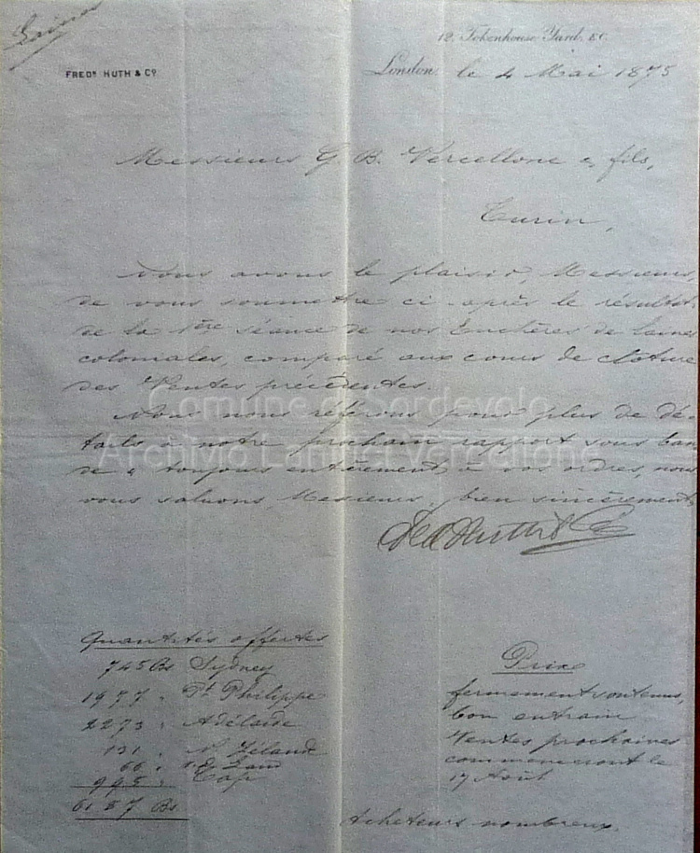 Laines
12, Tokenhouse Yard, EC.
FREDK HUTH & Co
London, le 4 Mai 1875
Messieurs G. B. Vercellone & fils,
Turin,
Nous avons le plaisir, Messieurs,
de vous soumettre ci-après le résultat
de la 1ère séance de nos Enchères de laines
coloniales, comparé aux cours de clôture
des Ventes précédentes.
Nous nous référons pour plus de dé-
tails à notre prochain rapport sous ban-
de & toujours entièrement à vos ordres, nous
vous saluons, Messieurs, bien sincèrement
Fred Huth & Co
Comune di Sordevolo
Archivio Lanifici Vercellone
Quantités offertes
745 Bs Sydney
1977 " Pt Philippe
2273 " Adélaide
131 " N. Zélande
66 " Land
995 " Cap
6187 Bs
Prix
fermement soutenus,
bon entrain
Ventes prochaines
commenceront le
17 Août
Acheteurs nombreux.